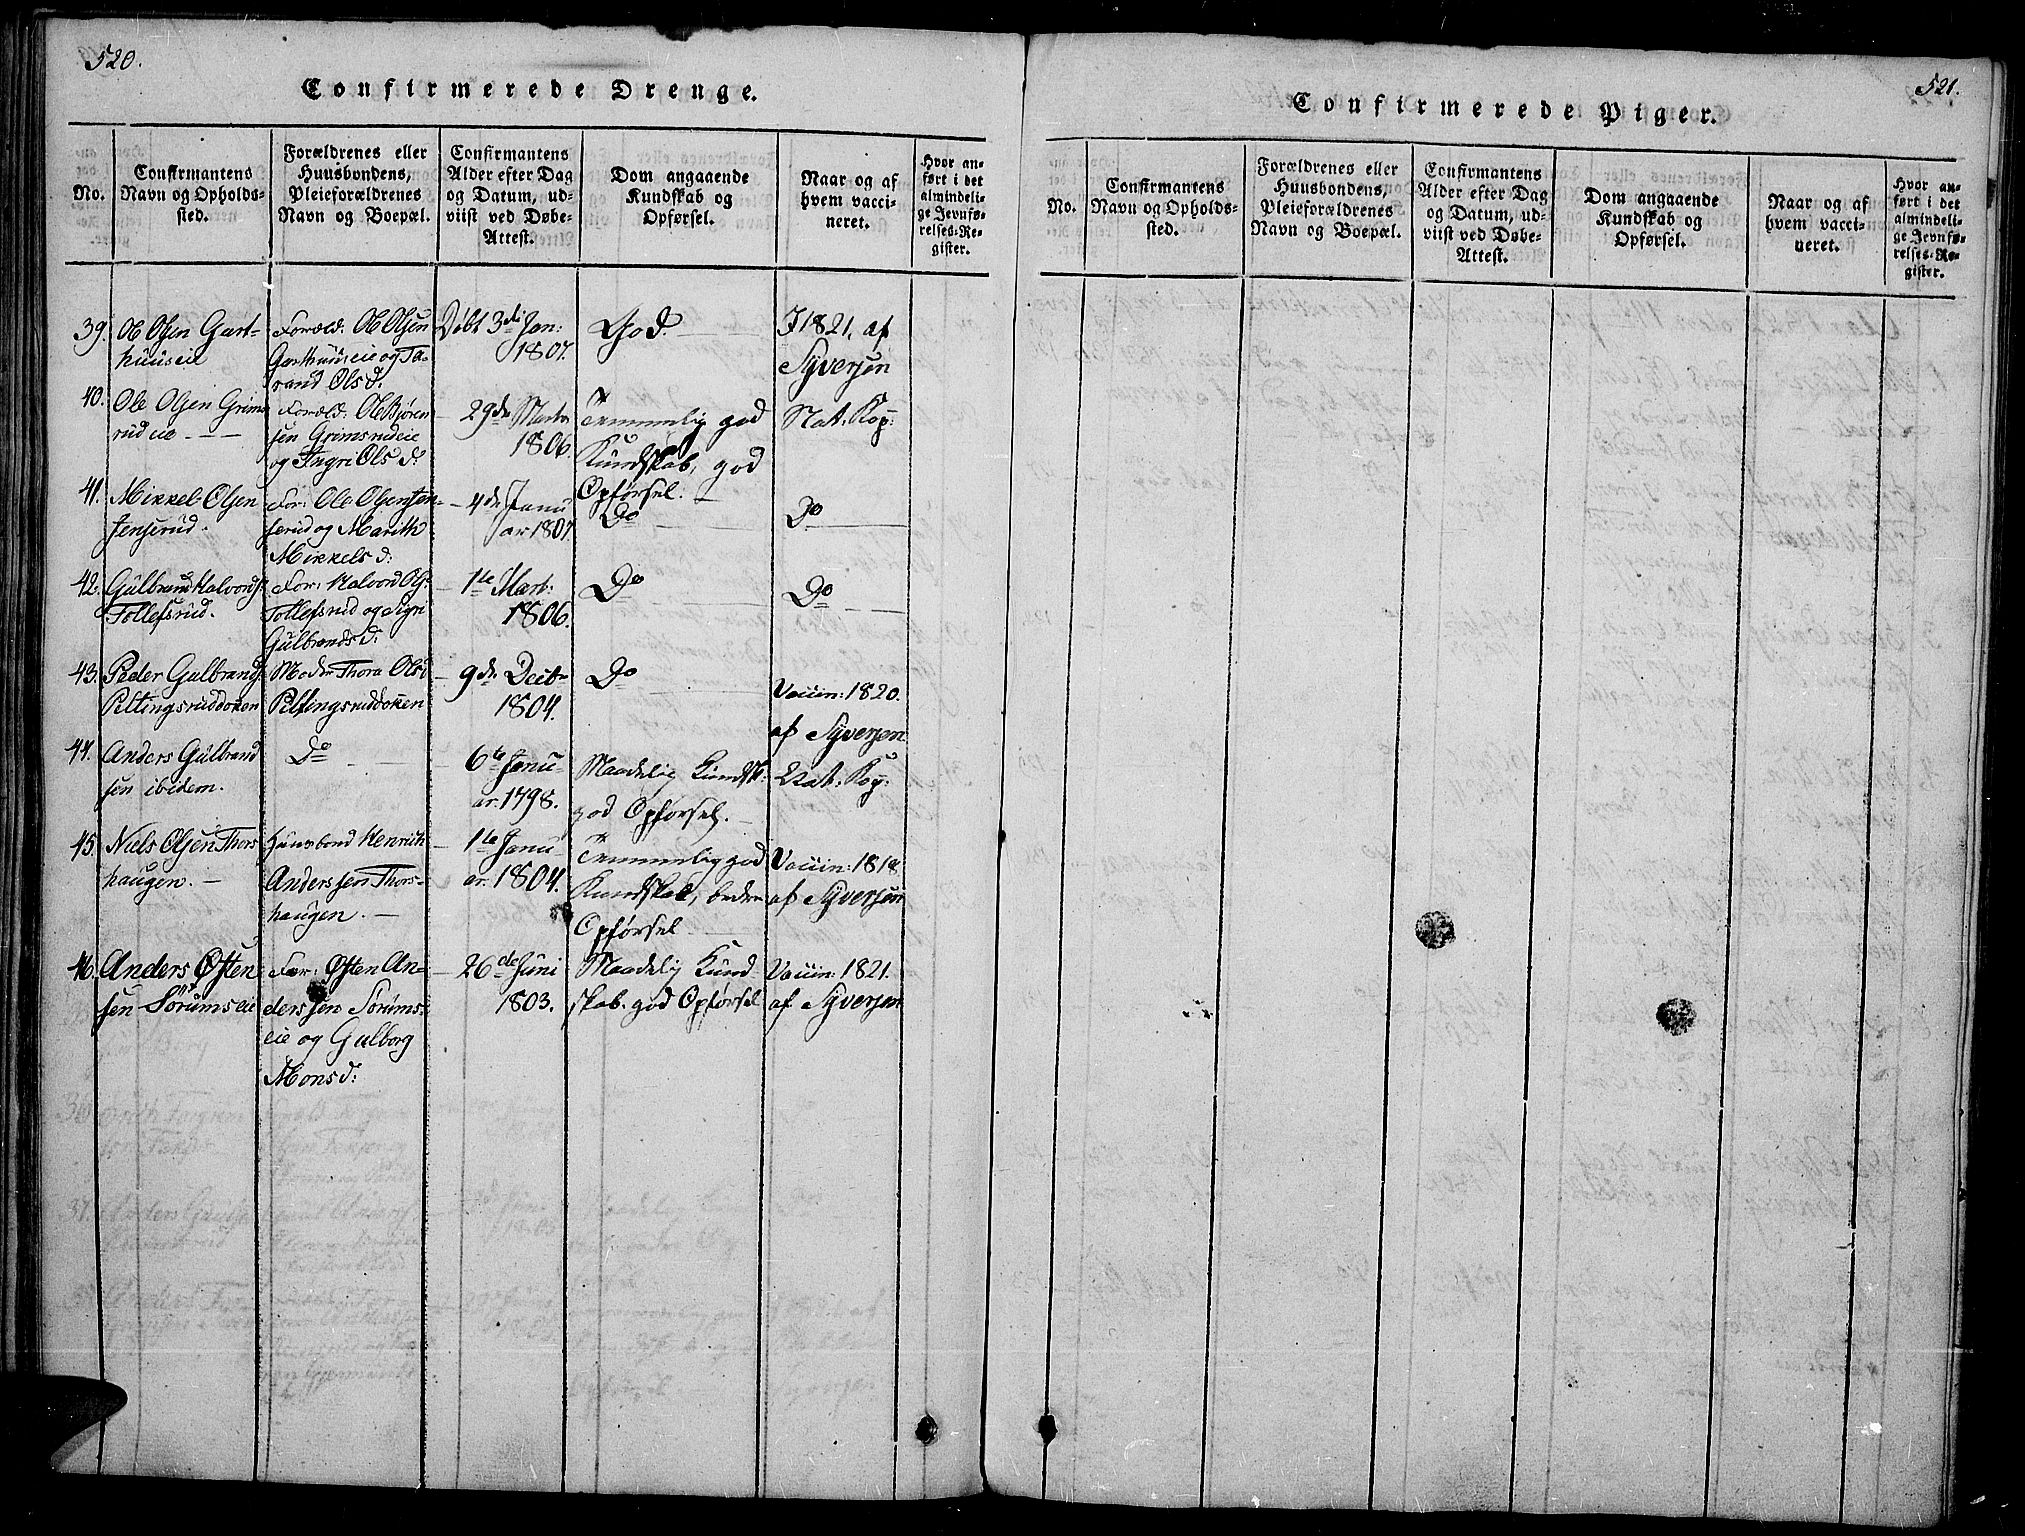 520.
Confirmerede Drenge.
No.
Confirmantens
Navn og Opholds-
sted.
Forældrenes eller
Huusbondens,
Pleieforældrenes
Navn og Boepæl.
Confirmantens
Alder efter Dag
og Datum, ud-
viist ved Døbe-
Attest.
Dom angaaende
Kundskab og
Opførsel.
Naar og af
hvem vacci-
neret.
Hvor an-
ført i det
almindeli-
ge Jevnfø-
relses-Re-
gister.
39. Ole Olsen Gart-
huuseie
Foræld: Ole Olsen
Garthuuseie og Ta-
rand Olsd.
Døbt 3de Jan:
1807.
God.
I 1821. af
Syversen
40. Ole Olsen Grims
rud eie
Foræld: Ole Kjøren
sen Grimsrudeie
og Ingri Ols d:
29de Marts
1806.
Temmelig god
Kundskab, god
Opførsel.
Nat: Kop:
41. Mikkel Olsen
Jensrud.
For: Ole Olsen Jen-
serud og Marith
Mikkels d:
4de Janu
ar 1807.
Do
Do
42. Gulbrand Halvords.
Tollefsrud.
For: Halvord Ols:
Tollefsrud og Sigri
Gulbrands d:
1te Mart:
1806.
Do
Do
43. Peder Gulbrands.
Peltingsruddoken
Moder Thora Olsd
Peltingsruddoken
9de Decbr
1804.
Do
Vaccin: 1820.
af Syversen
44. Anders Gulbrand
sen ibidem.
Do
6te Janu-
ar. 1798.
Maadelig Kundsk:
god Opførsel.
Nat: Kop:
45. Niels Olsen Thors
haugen.
Huusbond Henrich
Anderssen Thors-
haugen.
1te Janu-
ar. 1804.
Temmelig god
Kundskab, bedre
Opførsel
Vaccin: 1818
af Syversen
46. Anders Østen
sen Sörumseie
For: Østen An-
derssen Sörums-
eie og Gulborg
Mons d:
26de Juni
1803.
Maadelig Kund
skab. god Opførsel
Vaccin: 1821.
af Syversen
521.
Confirmerede Piger.
No.
Confirmantens
Navn og Opholds-
sted.
Forældrenes eller
Huusbondens,
Pleieforældrenes
Navn og Boepæl.
Confirmantens
Alder efter Dag
og Datum, ud-
viist ved Døbe-
Attest.
Dom angaaende
Kundskab og
Opførsel.
Naar og af
hvem vacci-
neret.
Hvor an-
ført i det
almindeli-
ge Jevnfø-
relses-Re-
gister.